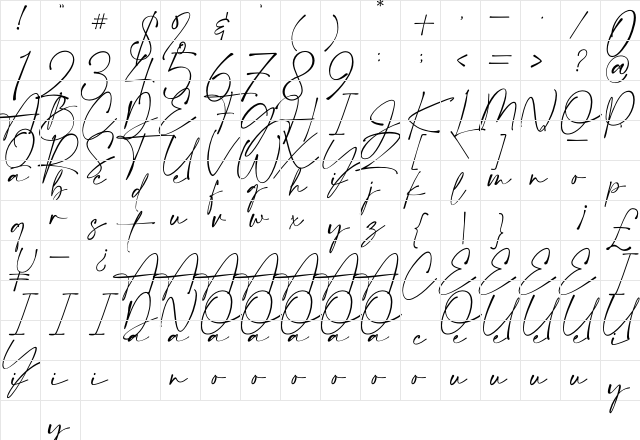 ! " # $ % & ' ( ) * + , - . / 0
1 2 3 4 5 6 7 8 9 : ; < = > ? @
A B C D E F G H I J K L M N O P
Q R S T U V W X Y Z [ \ ] _
a b c d e f g h i j k l m n o p
q r s t u v w x y z { | } ¡ £
¿ A A A A A A A C E E E E I
I I I D N O O O O O O U U U U
a a a a a a a c e e e e i
Y
i i i n o o o o o o u u u u y
y